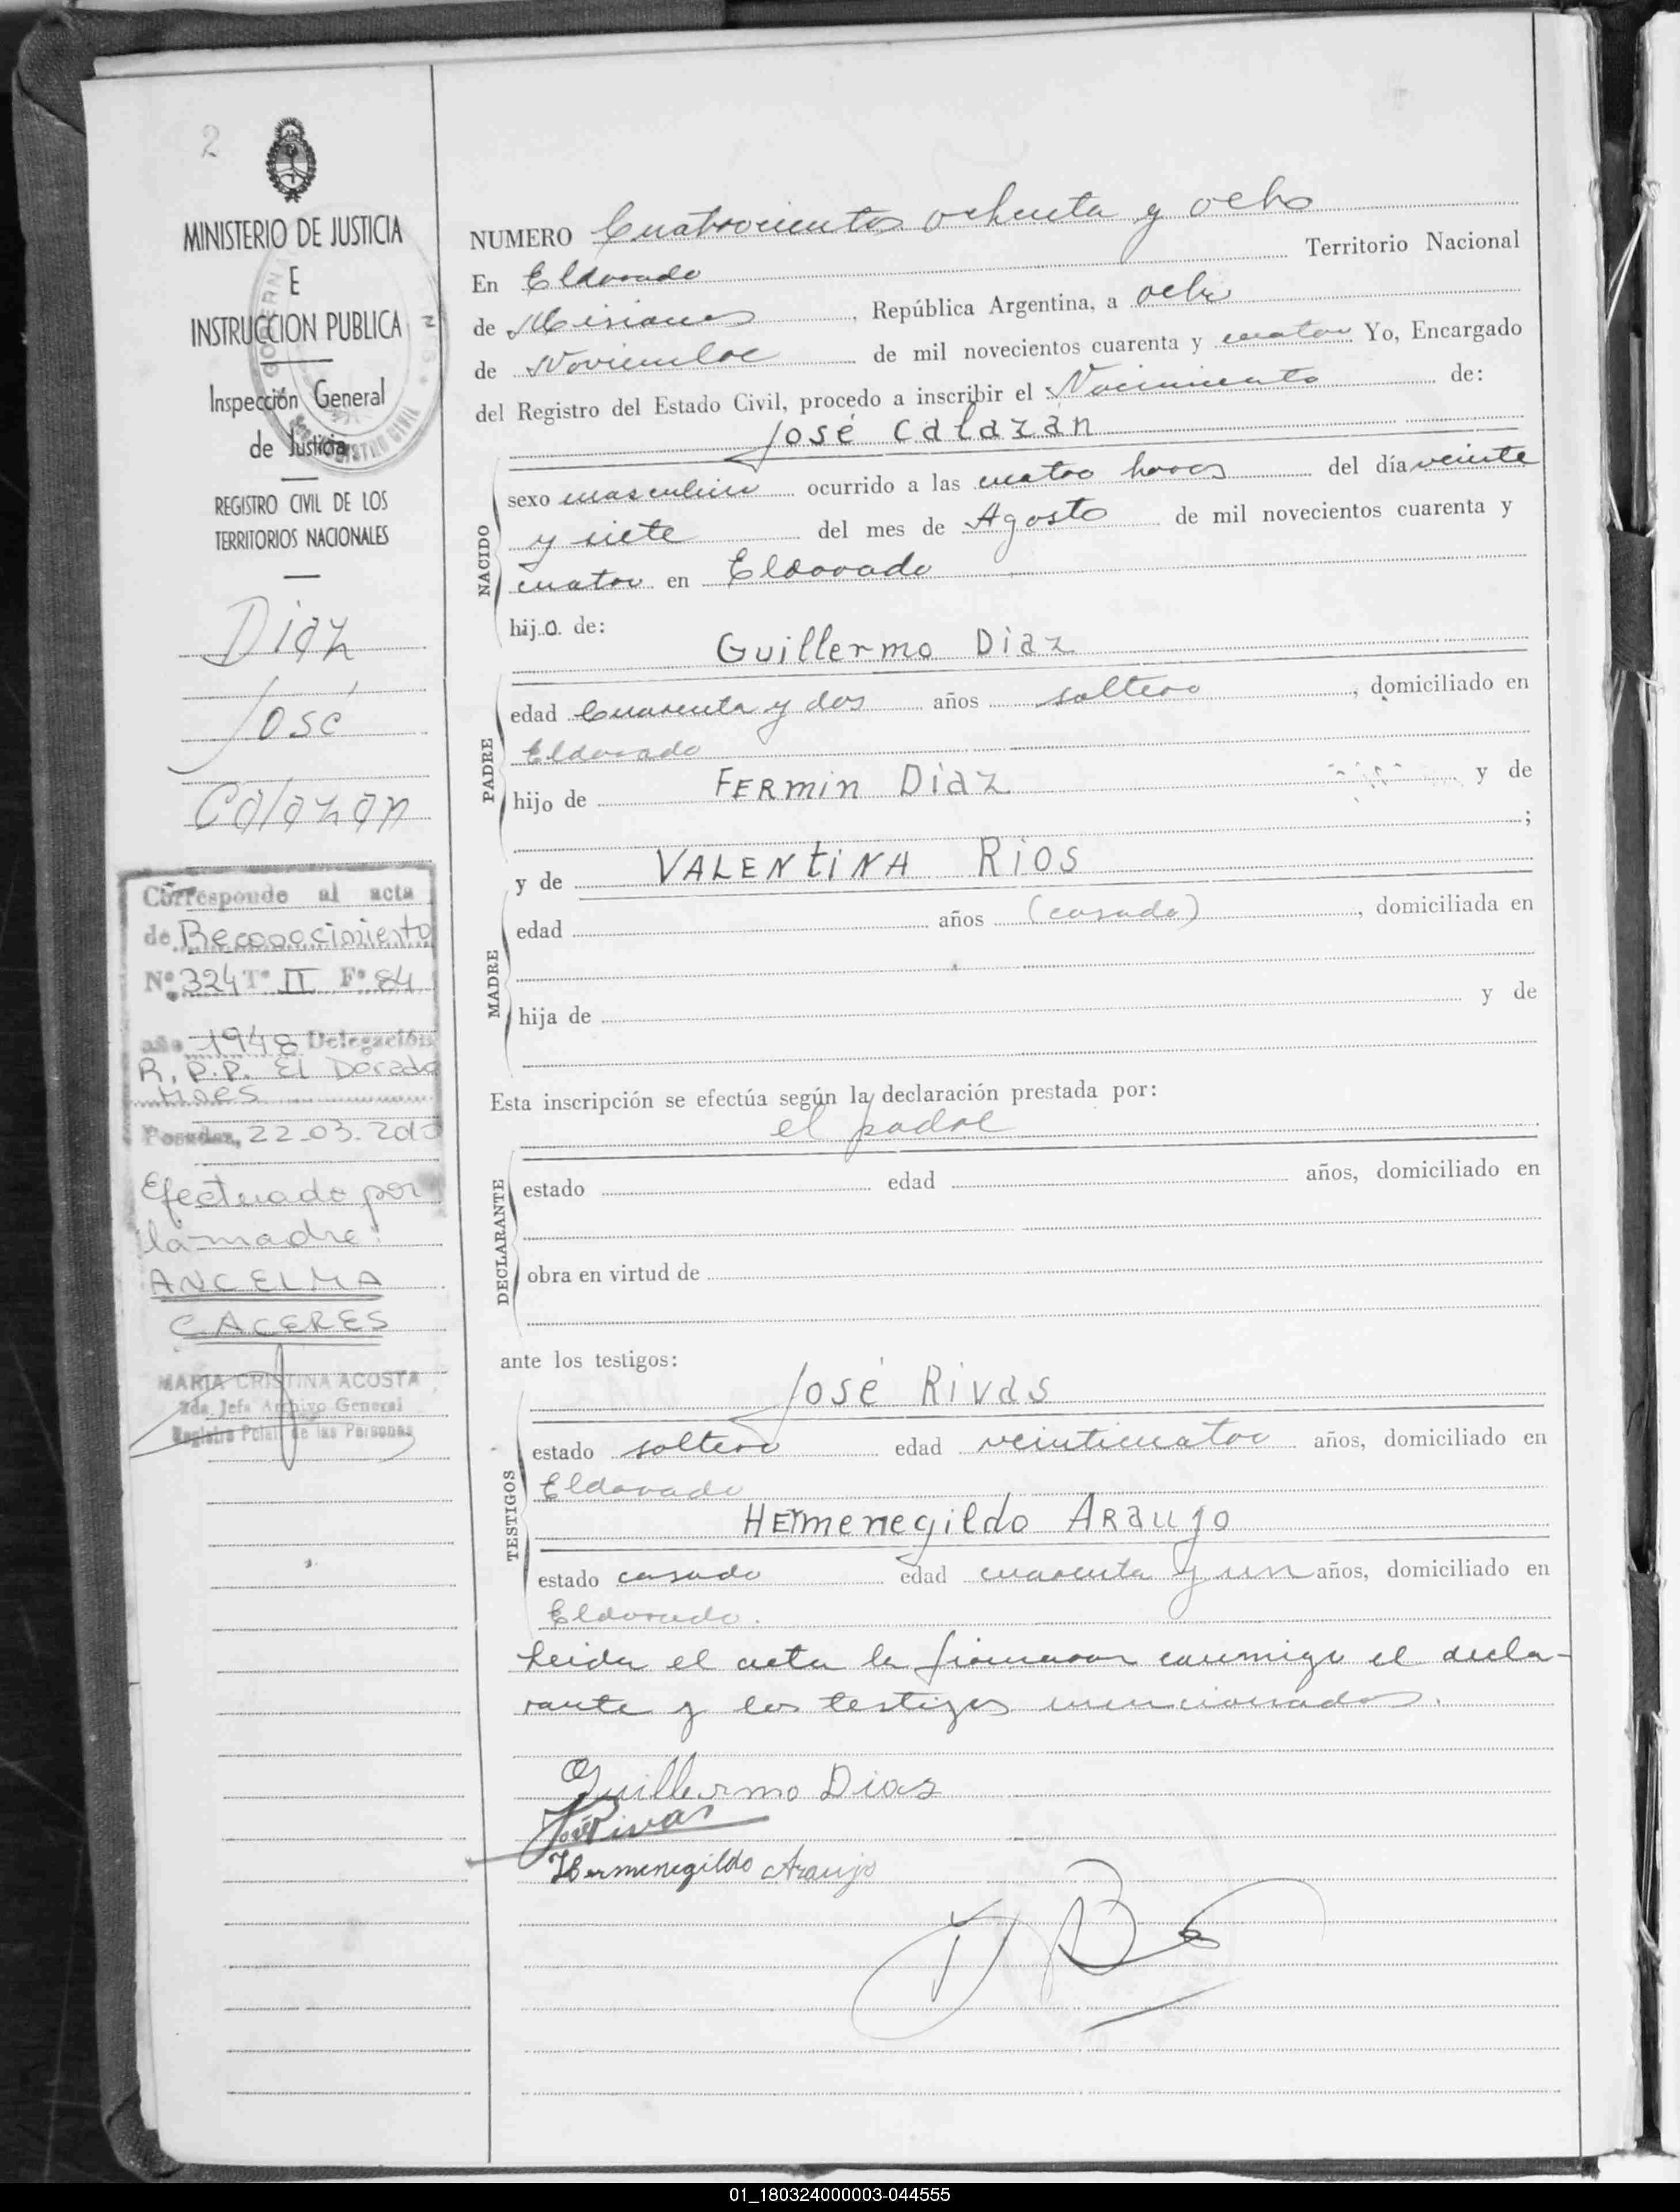 2
MINISTERIO DE JUSTICIA
E
INSTRUCCION PUBLICA
Inspección General
de Justicia
REGISTRO CIVIL DE LOS
TERRITORIOS NACIONALES
Diaz
José
Calazan
Corresponde al acta
de Reconocimiento
Nº 324 Tº II Fº 84
año 1948 Delegación
R.P.P. El Dorado
Mnes
Posadas, 22-03-201
Efectuado por
la madre:
ANCELMA
CACERES
MARIA CRISTINA ACOSTA
2da. Jefa Archivo General
Registro Pcial. de las Personas
NUMERO Cuatrocientos ochenta y ocho
En Eldorado Territorio Nacional
de Misiones, República Argentina, a ocho
de Noviembre de mil novecientos cuarenta y cuatro Yo, Encargado
del Registro del Estado Civil, procedo a inscribir el Nacimiento de:
José Calazán
NACIDO
sexo masculino ocurrido a las cuatro horas del día veinte
y siete del mes de Agosto de mil novecientos cuarenta y
cuatro en Eldorado
hijo de:
Guillermo Diaz
PADRE
edad Cuarenta y dos años soltero, domiciliado en
Eldorado
hijo de FERmin Diaz y de
;
y de VALENtiNA Rios
MADRE
edad años (casada), domiciliada en
hija de y de
Esta inscripción se efectúa según la declaración prestada por:
el padre
DECLARANTE
estado edad años, domiciliado en
obra en virtud de
ante los testigos:
José Rivas
TESTIGOS
estado soltero edad veinticuatro años, domiciliado en
Eldorado
HErmenegildo ARaujo
estado casado edad cuarenta y un años, domiciliado en
Eldorado.
Leida el acta la firmaron conmigo el decla-
rante y los testigos mencionados.
Guillermo Dias
José Rivas
Hermenegildo Araujo
01_180324000003-044555